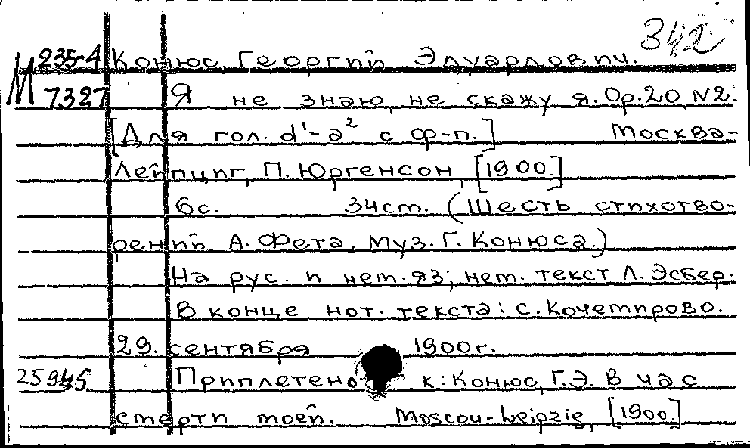 342
М 235-4 Конюс, Георгий Эдуардович.
7327 Я не знаю, не скажу я. Ор.20, N2.
[Для гол. d¹-a² с ф-п.] Москва-
Лейпциг, П. Юргенсон, [1900]
6с. 34ст. (Шесть стихотво-
рений А. Фета, муз. Г. Конюса.)
На рус. и нем. яз; нем. текст Л. Эсбер.
В конце нот. текста: с. Кочетирово.
29. сентября 1900г.
25945 Приплетено к: Конюс, Г.Э. В час
смерти моей. Moscou-Leipzig, [1900.]